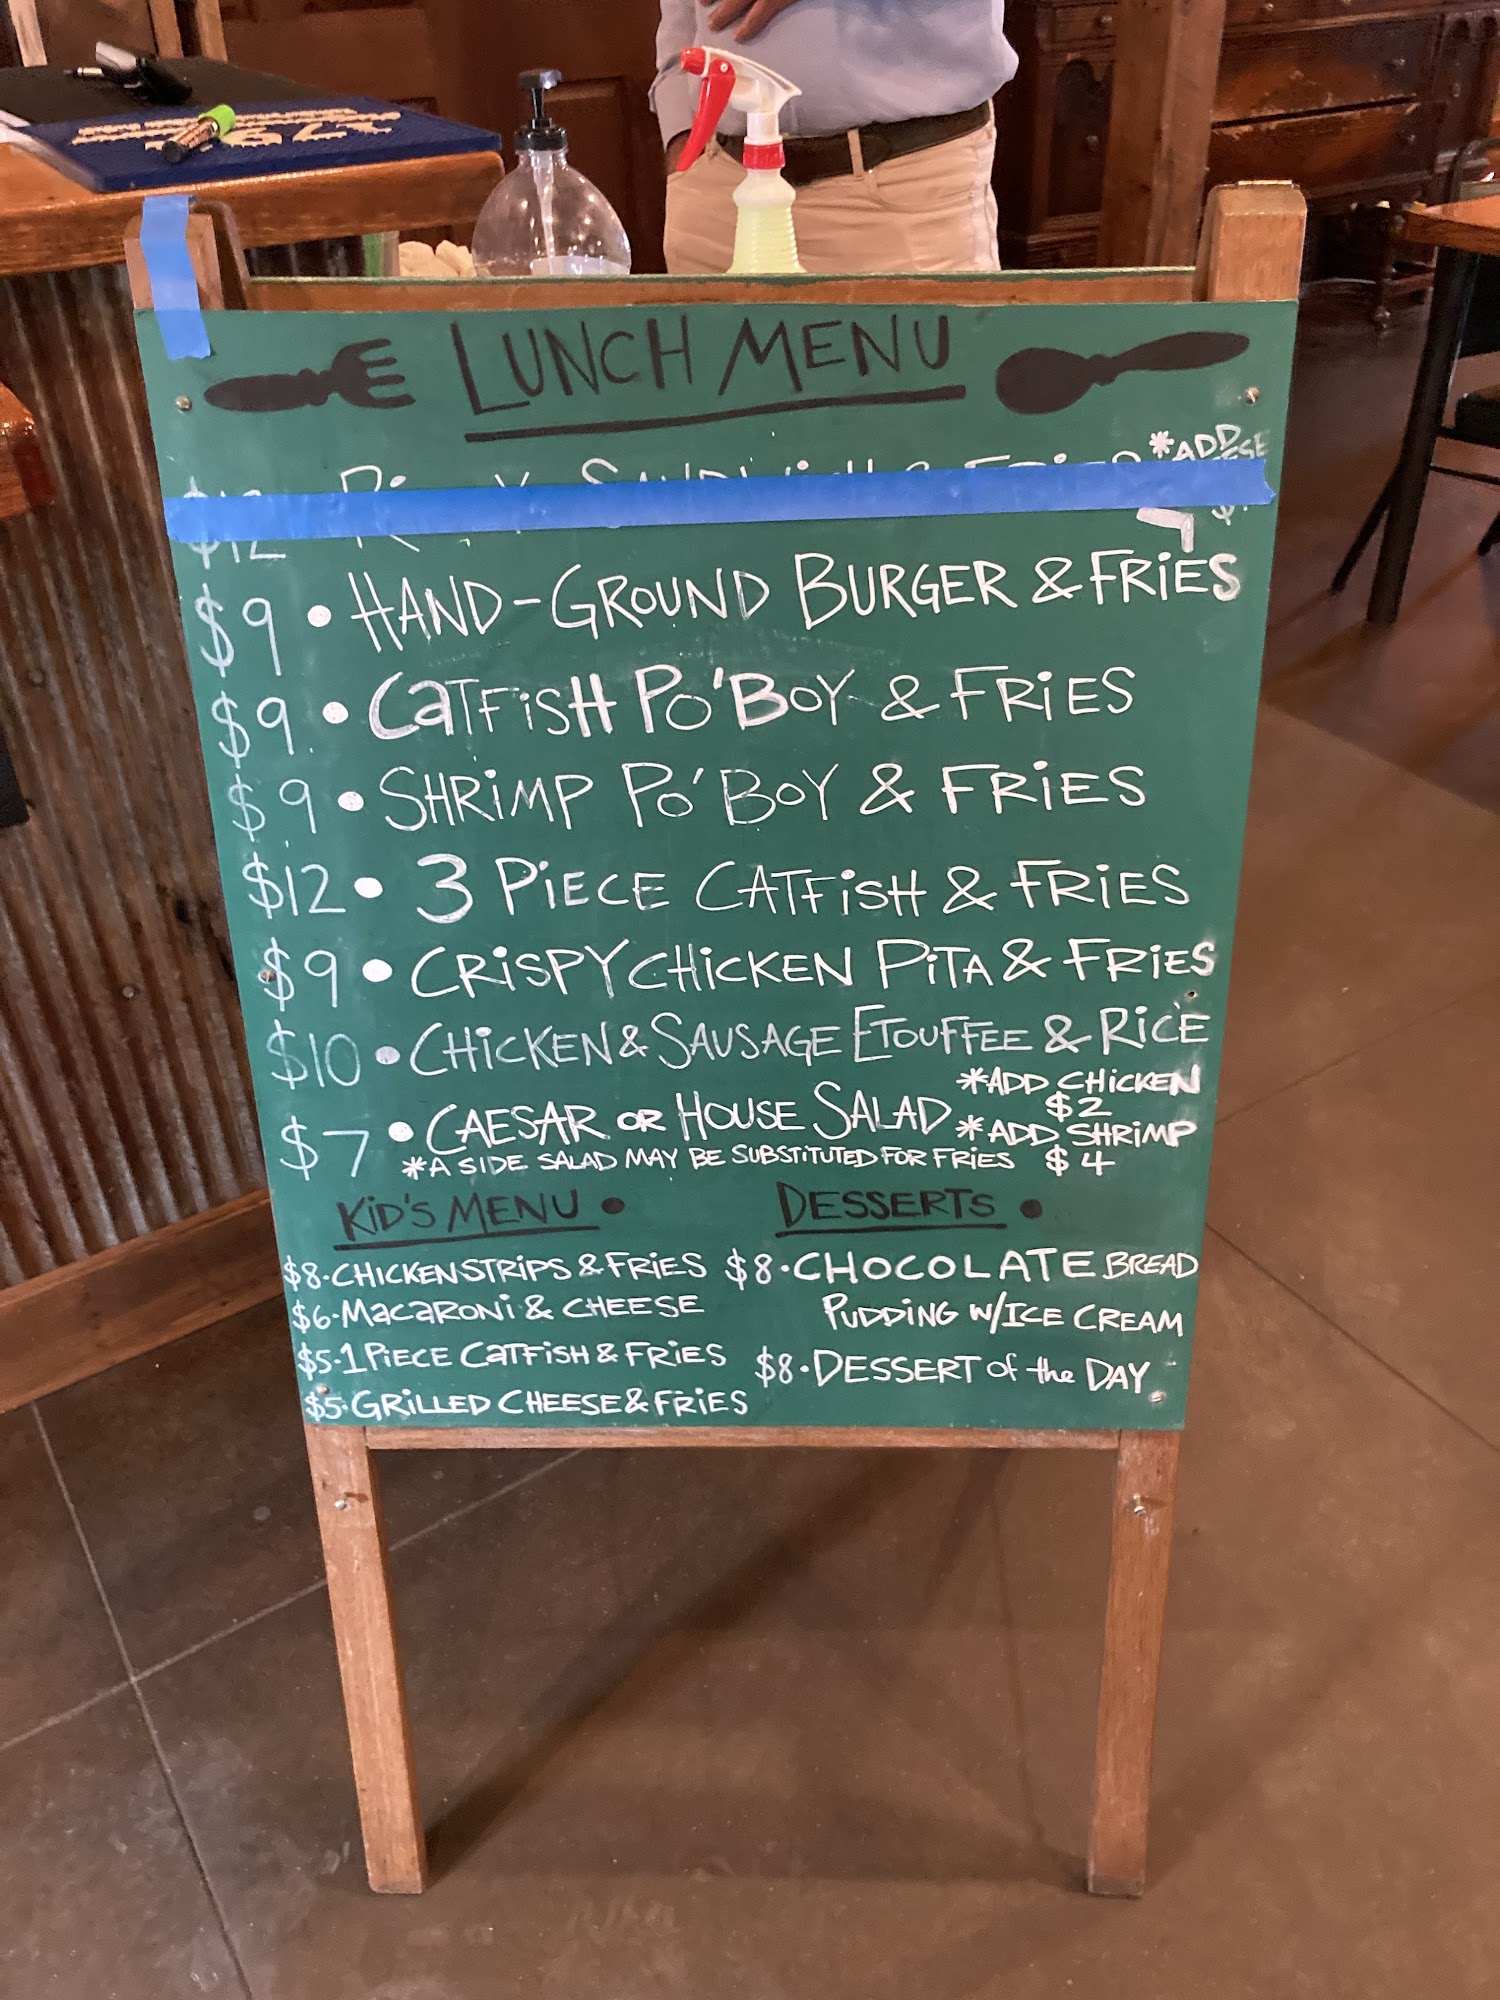 LUNCH MENU
$12 Sandwich & Fries *ADD
$9 • HAND-GROUND BURGER & FRiES
$9 • CATFiSH PO'BOY & FRiES
$9 • SHRiMP PO'BOY & FRiES
$12 • 3 PiECE CATFiSH & FRiES
$9 • CRiSPY CHiCKEN PiTA & FRiES
$10 • CHiCKEN & SAUSAGE ETOUFFEE & RiCE
*ADD CHiCKEN
$2
$7 • CAESAR OR HOUSE SALAD
*ADD SHRiMP
$4
*A SIDE SALAD MAY BE SUBSTiTUTED FOR FRiES
KiD'S MENU •
$8•CHiCKEN STRiPS & FRiES
$6•MACARONi & CHEESE
$5•1 PiECE CATFiSH & FRiES
$5•GRiLLED CHEESE & FRiES
DESSERTS •
$8•CHOCOLATE BREAD
PUDDiNG W/ICE CREAM
$8•DESSERT of the DAY